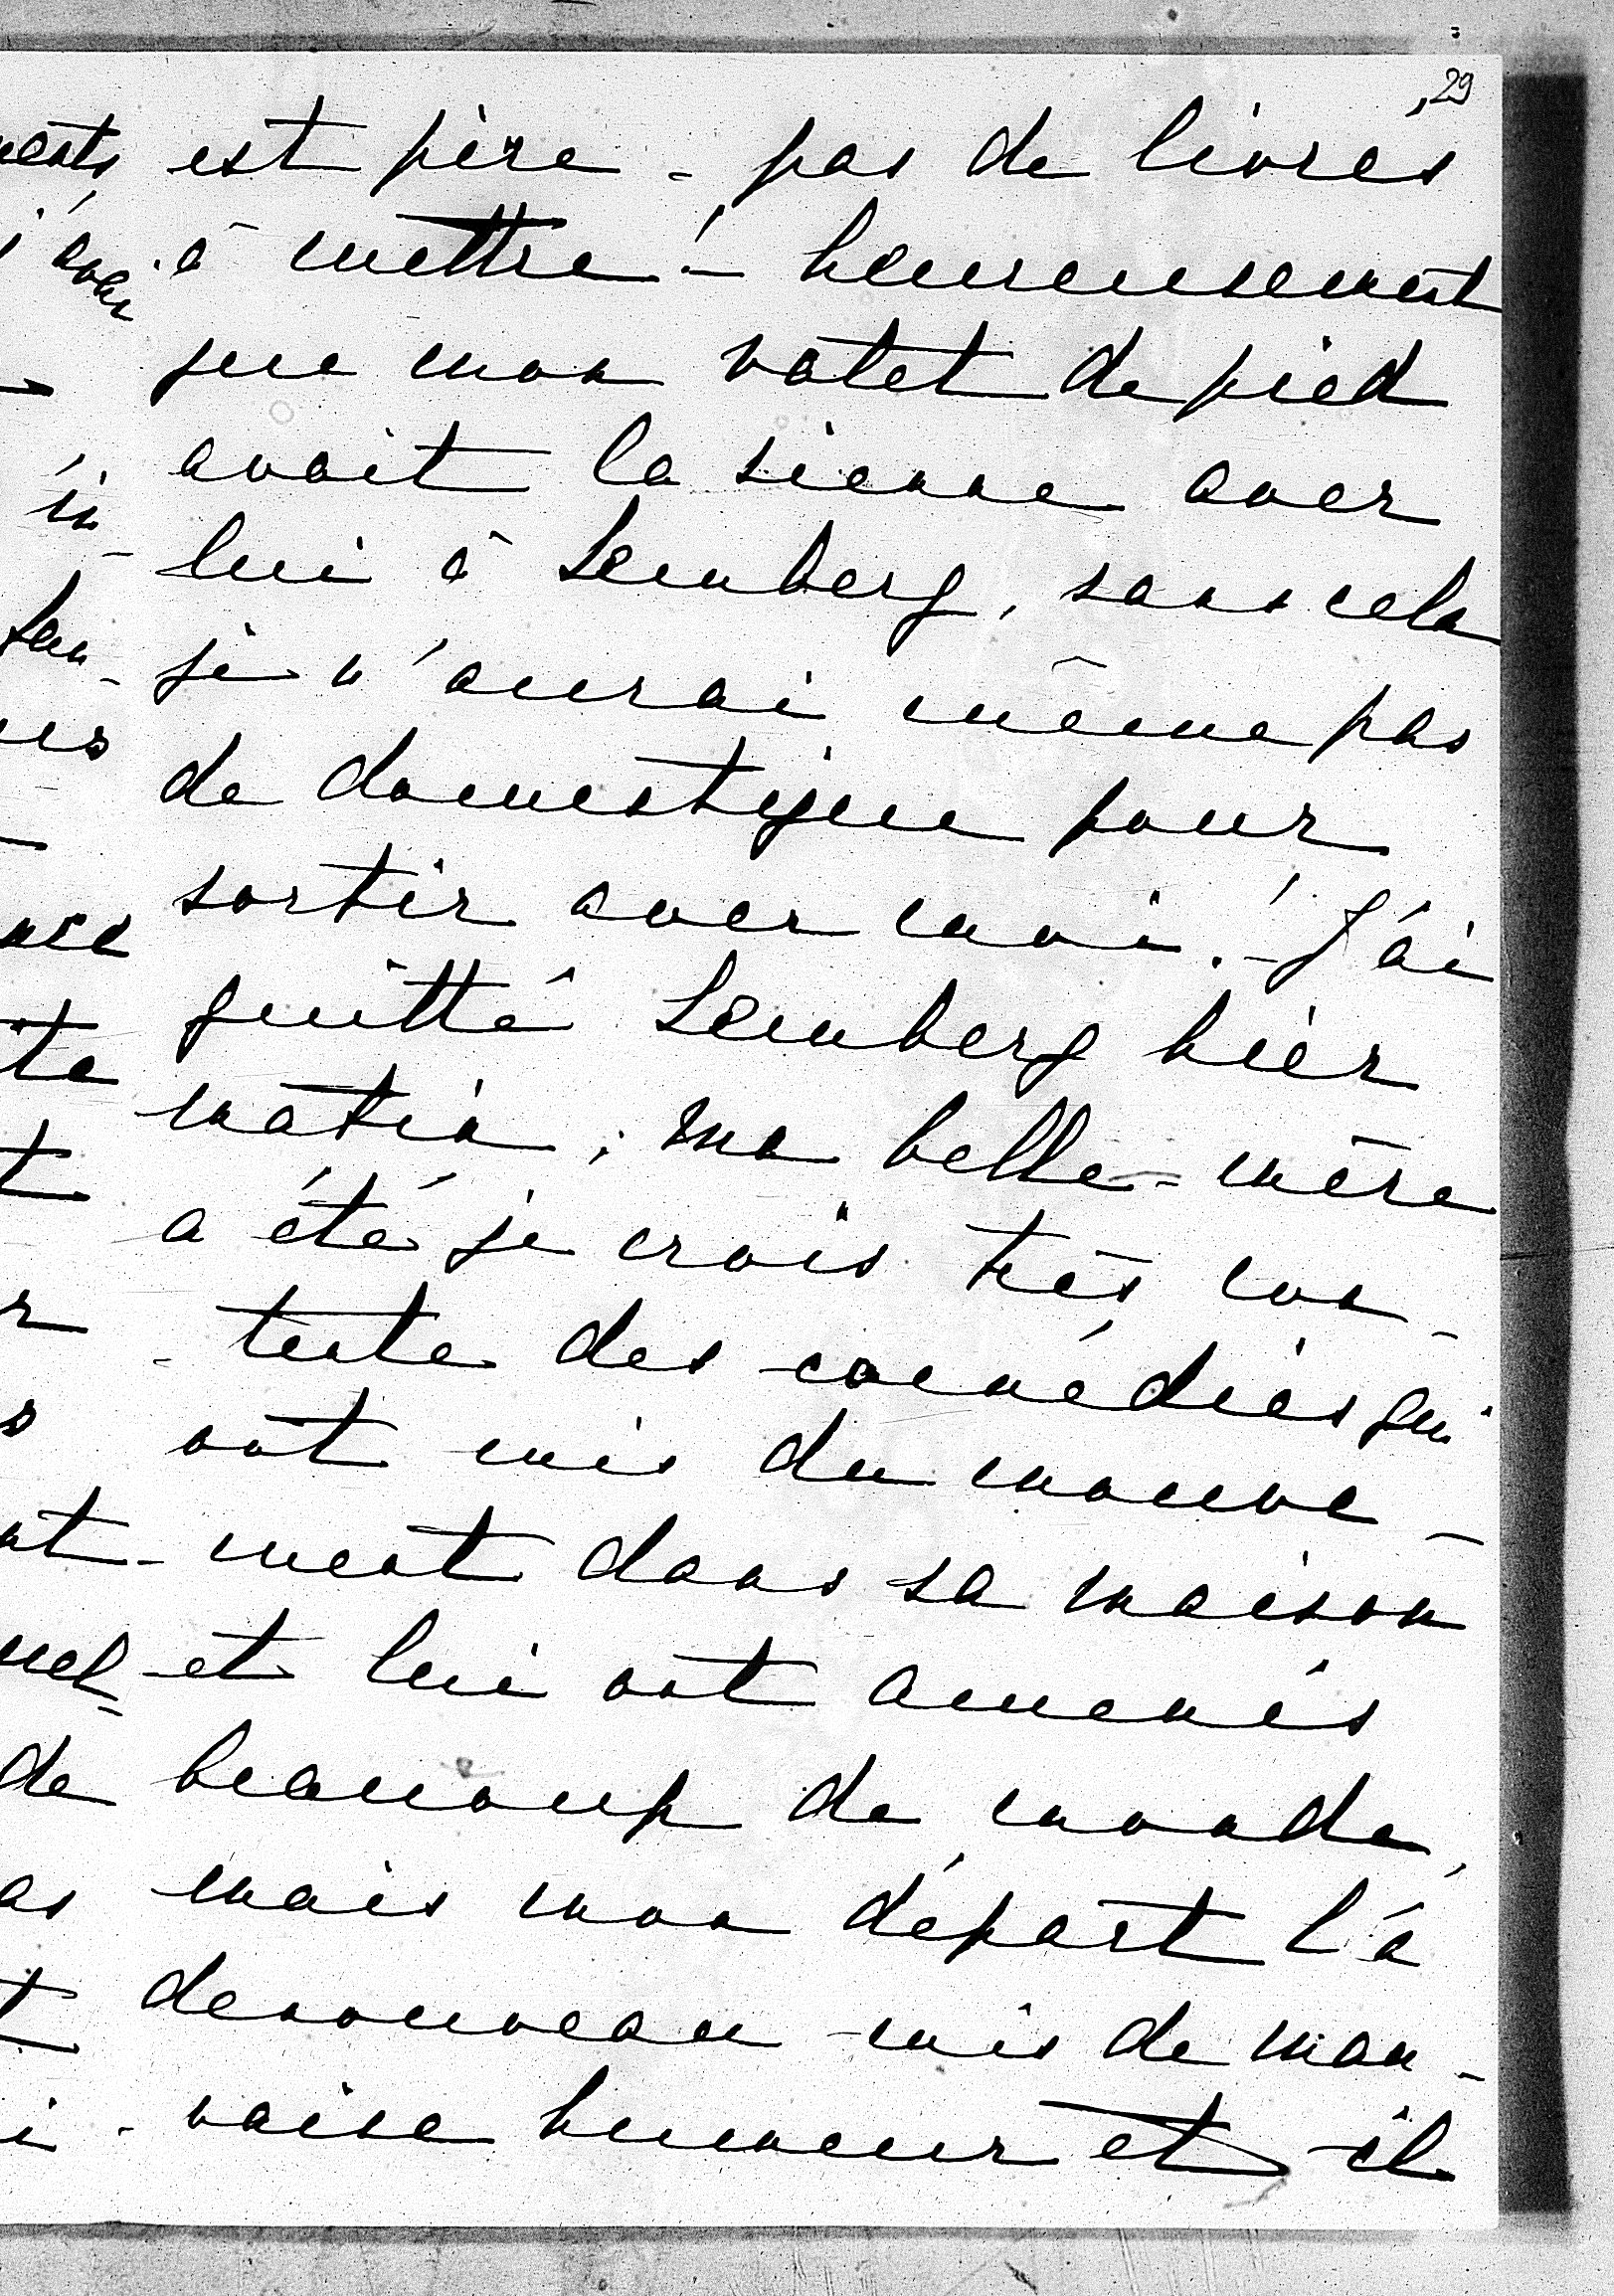 29
est pire - pas de livrés
à mettre! - heureusement
que mon valet de pied
avait la sienne avec
lui à Lemberg, sans cela
je n'aurai même pas
de domestique pour
sortir avec moi! - J'ai
quitté Lemberg hier
matin; ma belle-mère
a été je crois très con-
tente des comédies qui
ont mis du mouve-
ment dans sa maison
et lui ont amenés
beaucoup de monde,
mais mon départ l'a
denouveau mis de mau-
vaise humeur et il